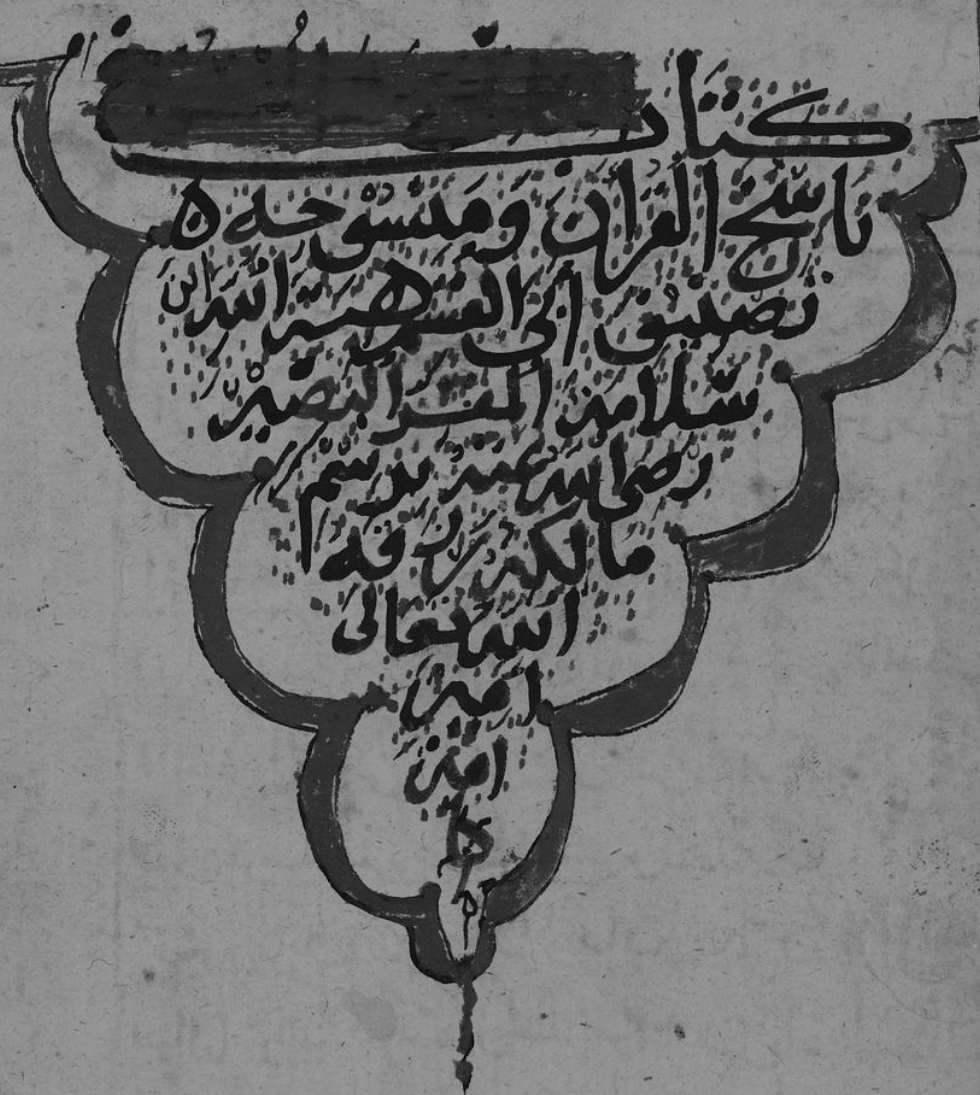 كتاب
ناسخ القران ومنسوخه ه
تصنيف ابى القسم هبه الله ابن
سلامه المفسر البصير
رضى الله عنه برسم
مالكه رزقه
الله تعالى
امين
امين
ه